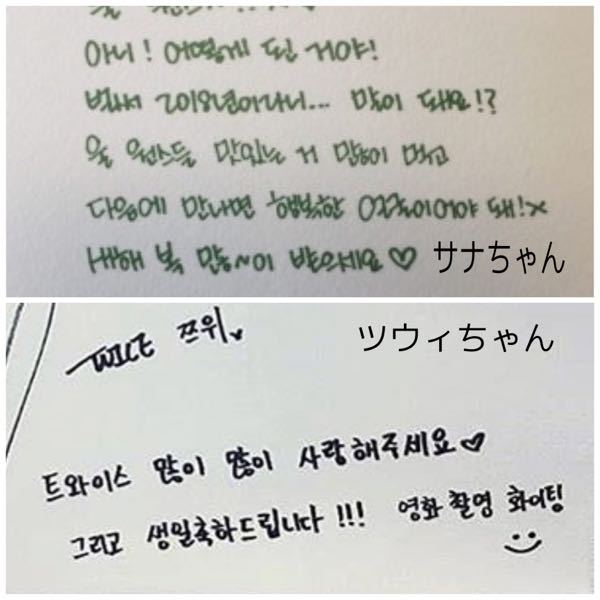 아니! 어떻게 된 거야!
벌써 2018년이라니... 말이 돼요!?
울 원스들 맛있는 거 많이 먹고
다음에 만나면 행복한 얼굴이어야 돼!
새해 복 많~이 받으세요♡ サナちゃん
TWICE 쯔위♥ ツウィちゃん
트와이스 많이 많이 사랑해주세요♡
그리고 생일축하드립니다!!! 영화 촬영 화이팅